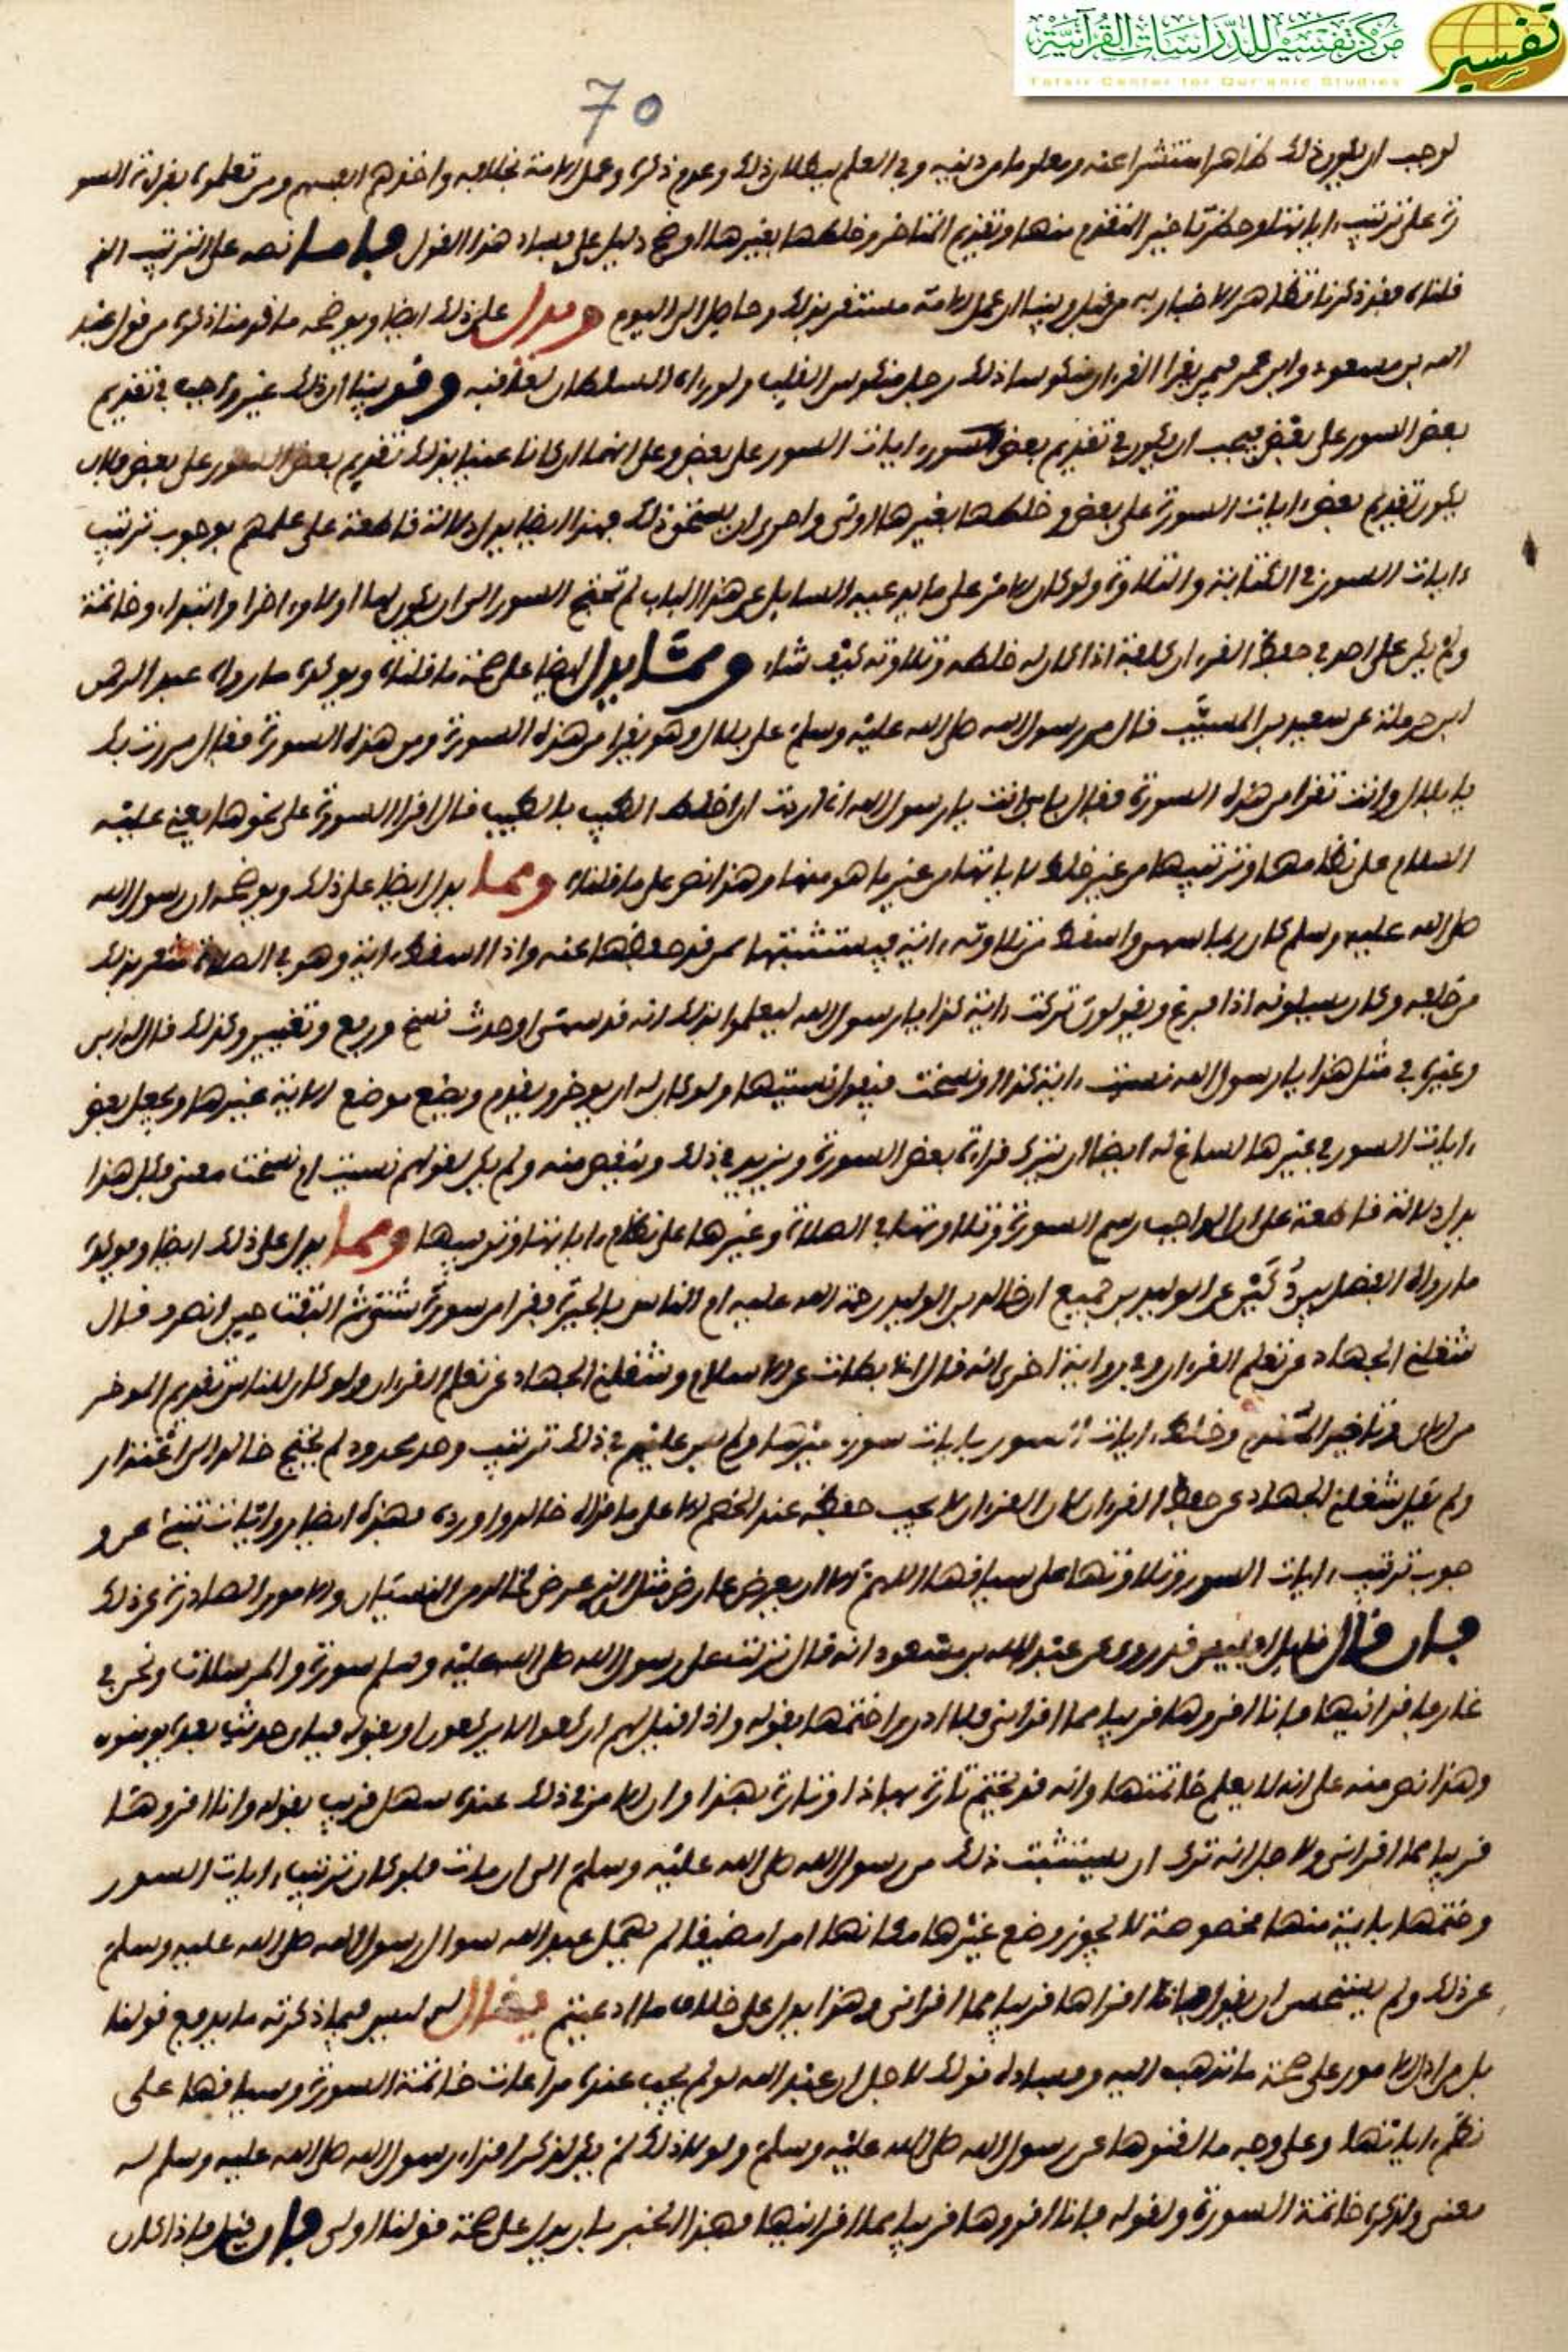 مركز تفسير للدراسات القرآنية
Tafsir Center for Qur'anic Studies
تفسير
70
لوجب ان يكون ذلك ظاهرا منتشرا عنه ومعلوما من دينه وفي العلم ببطلان ذلك وعدم ذكره وعمل الامة بخلافه واخذهم انفسهم ومن تعلموه بقراءة السو
رة على ترتيب ءاياتها وحظر تاخير المتقدم منها وتقديم المتاخر وخلطها بغيرها اوضح دليل على فساد هذا القول فاما نصه على الترتيب الذي
قلناه فقد ذكرنا تظاهر الاخبار به من قبل وبينا ان عمل الامة مستقر بذلك وحاصل الى اليوم ويدل على ذلك ايضا ويوضحه ما قدمنا ذكره من قول عبد
الله بن مسعود وابن عمر فيمن يقرا القرءان منكوسا ذلك رجل منكوس القلب ولو رءاه السلطان لعاقبه وقد بينا ان ذلك غير واجب في تقديم
بعض السور على بعض فيجب ان يكون في تقديم بعض ءايات السور على بعض وعلى انهما ان كانا عنيا بذلك تقديم بعض السور على بعض فلان
يكون تقديم بعض ءايات السورة على بعض وخلطها بغيرها اولى واحرى ان يستحق ذلك فهذا ايضا يدل دلالة قاطعة على علمهم بوجوب ترتيب
ءايات السور في الكتابة والتلاوة ولو كان الامر على ما يدعيه السايل عن هذا الباب لم تحتج السور الى ان يكون لها اولا وءاخرا وابتداء وخاتمة
ولم يكن على احد في حفظ القرءان كلفة اذا كان له خلطه وتلاوته كيف شاء ومما يدل ايضا على صحة ما قلناه ويوكده ما رواه عبد الرحمن
ابن حرملة عن سعيد بن المسيب قال مر رسول الله صلى الله عليه وسلم على بلال وهو يقرا من هذه السورة ومن هذه السورة فقال مررت بك
يا بلال وانت تقرا من هذه السورة فقال بابي انت يا رسول الله اني اردت ان اخلط الطيب بالطيب قال اقرا السورة على نحوها يعني عليه
السلام على نظامها وترتيبها من غير خلط لاياتها من غير ما هو منها وهذا نص على ما قلناه ومما يدل ايضا على ذلك ويوضحه ان رسول الله
صلى الله عليه وسلم كان ربما سهى واسقط من تلاوته ءاية فيستثبتها ممن قد حفظها عنه واذا اسقط ءاية وهو في الصلاة شعر بذلك
من خلفه وكان يسيلونه اذا فرغ ويقولون تركت ءاية كذا يا رسول الله ليعلموا بذلك انه قد سهى او حدث نسخ ورفع وتغيير وكذلك قال له ابي
وغيره في مثل هذا يا رسول الله نسيت ءاية كذا او نسخت فيقول نسيتها ولو كان له ان يوخر ويقدم ويضع موضع الاية غيرها ويجعل بعض
ءايات السور في غيرها لساغ له ايضا ان يترك قراءة بعض السورة ويزيد في ذلك وينقص منه ولم يكن لقولهم نسيت ام نسخت معنى فكل هذا
يدل دلالة قاطعة على ان الواجب رسم السورة وتلاوتها في الصلاة وغيرها على نظام ءاياتها وترتيبها ومما يدل على ذلك ايضا ويوكده
ما رواه الفضل بن دكين عن الوليد بن جميع ان خالد بن الوليد رحمة الله عليه ام الناس بالحيرة فقرا من سور شتى ثم التفت حين انصرف فقال
شغلني الجهاد عن تعلم القرءان وفي رواية اخرى انه قال اني بطات عن الاسلام وشغلني الجهاد عن تعلم القرءان ولو كان للناس تقديم الموخر
من الاي وتاخير المقدم وخلط ءايات السور بايات سورة غيرها ولم يكن عليهم في ذلك ترتيب وحد محدود لم يحتج خالد الى اعتذار
ولم يقل شغلني الجهاد عن حفظ القرءان لان القرءان لا يجب حفظه عند الخصم الا على ما قراه خالد واورده فهذه ايضا روايات تنبئ عن و
جوب ترتيب ءايات السور وتلاوتها على سياقها اللهم الا ان يعرض عارض مثل الذي عرض لخالد من النسيان والامور الصادة عن ذلك
فان قال قايل افليس قد روي عن عبد الله بن مسعود انه قال نزلت على رسول الله صلى الله عليه وسلم سورة والمرسلات ونحن في
غار فاقرانيها فانا اقروها قريبا مما اقراني فلا ادري اختمها بقوله واذا قيل لهم اركعوا لا يركعون او بقوله فباي حديث بعده يومنون
وهذا نص منه على انه لا يعلم خاتمتها وانه قد يختم تارة بهاذا وتارة بهذا وان الامر في ذلك عنده سهل قريب بقوله وانا اقروها
قريبا مما اقراني ولاجل انه ترك ان يستثبت ذلك من رسول الله صلى الله عليه وسلم الى ان مات فلو كان ترتيب ءايات السور
وختمها باية منها مخصوصة لا يجوز وضع غيرها مكانها امرا مضيقا لم يهمل عبد الله سوال رسول الله صلى الله عليه وسلم
عن ذلك ولم يستحسن ان يقول فانا اقراها قريبا مما اقراني وهذا يدل على خلاف ما ادعيتم يقال له ليس فيما ذكرته ما يدفع قولنا
بل من ادل الامور على صحة ما نذهب اليه وفساد قولك لاجل ان عبد الله لو لم يجب عنده مراعات خاتمة السورة وسياقها على
نظم ءاياتها وعلى وجه ما لقنوها عن رسول الله صلى الله عليه وسلم ولولا ذلك لم يكن لذكر اقراء رسول الله صلى الله عليه وسلم له
معنى ولذكره خاتمة السورة ولقوله فانا اقروها قريبا مما اقرانيها فهذا الخبر بان يدل على صحة قولنا اولى فان قيل فاذا كان